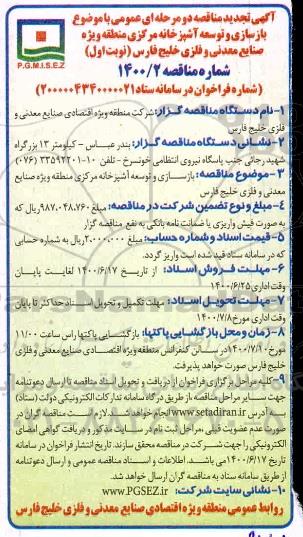 آگهی تجدید مناقصه دو مرحله ای عمومی با موضوع
بازسازی و توسعه آشپزخانه مرکزی منطقه ویژه
صنایع معدنی و فلزی خلیج فارس (نوبت اول)
P.G.M.I.S.E.Z
شماره مناقصه ۱۴۰۰/۲
(شماره فراخوان در سامانه ستاد ۲۰۰۰۰۰۴۳۴۰۰۰۰۰۲۱)
۱- نام دستگاه مناقصه گزار: شرکت منطقه ویژه اقتصادی صنایع معدنی و
فلزی خلیج فارس
۲- نشانی دستگاه مناقصه گزار: بندر عباس – کیلومتر ۱۳ بزرگراه
شهید رجائی جنب پاسگاه نیروی انتظامی خونسرخ - تلفن ۱۰-۳۳۵۹۲۲۰۱ (۰۷۶)
۳- موضوع مناقصه: بازسازی و توسعه آشپزخانه مرکزی منطقه ویژه صنایع
معدنی و فلزی خلیج فارس
۴- مبلغ و نوع تضمین شرکت در مناقصه: مبلغ ۹۸۷.۰۴۸.۷۶۰ ریال که
به صورت فیش واریزی یا ضمانت نامه بانکی به نفع مناقصه گزار
۵- قیمت اسناد و شماره حساب: مبلغ ۲.۰۰۰.۰۰۰ ریال به شماره حسابی
که در سامانه ستاد قید شده است واریز گردد.
۶- مهلت فروش اسناد: از تاریخ ۱۴۰۰/۶/۱۷ لغایت پایان
وقت اداری ۱۴۰۰/۶/۲۵
۷- مهلت تحویل اسناد: مهلت تکمیل و تحویل اسناد حداکثر تا پایان
وقت اداری مورخ ۱۴۰۰/۷/۸
۸- زمان و محل بازگشایی پاکتها: بازگشایی پاکتها راس ساعت ۱۱/۰۰
مورخ ۱۴۰۰/۷/۱۰ در سالن کنفرانس منطقه ویژه اقتصادی صنایع معدنی و فلزی
خلیج فارس صورت خواهد پذیرفت.
۹- کلیه مراحل برگزاری فراخوان از دریافت و تحویل اسناد مناقصه تا ارسال دعوتنامه
جهت سایر مراحل مناقصه از طریق درگاه سامانه تدارکات الکترونیکی دولت (ستاد)
به آدرس www.setadiran.ir انجام خواهد شد. لازم است مناقصه گران در
صورت عدم عضویت قبلی، مراحل ثبت نام در سایت مذکور و دریافت گواهی امضای
الکترونیکی را جهت شرکت در مناقصه محقق سازند. تاریخ انتشار فراخوان در سامانه
تاریخ ۱۴۰۰/۶/۱۷ می باشد. اطلاعات و اسناد مناقصه عمومی و ارسال دعوتنامه
از طریق سامانه ستاد به مناقصه گران ارسال خواهد شد.
۱۰- نشانی سایت شرکت: www.PGSEZ.ir
روابط عمومی منطقه ویژه اقتصادی صنایع معدنی و فلزی خلیج فارس